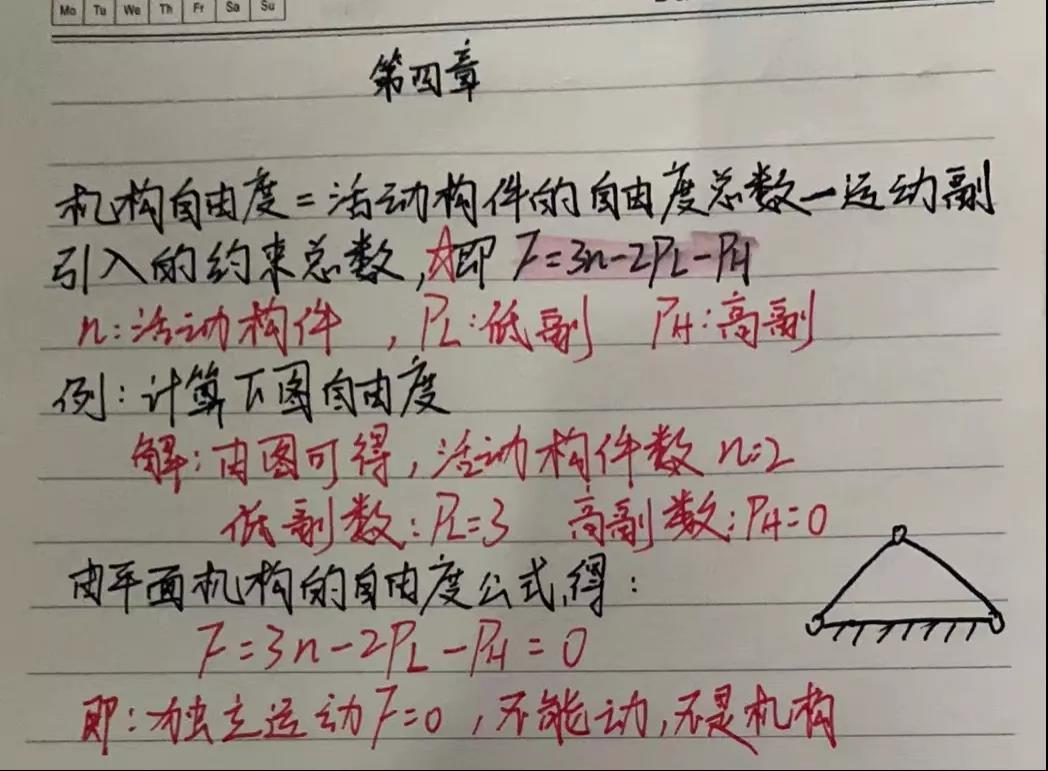 Mo Tu We Th Fr Sa Su
第四章
机构自由度=活动构件的自由度总数-运动副
引入的约束总数,☆即 F=3n-2PL-PH
n:活动构件 ,PL:低副 PH:高副
例:计算下图自由度
解:由图可得,活动构件数 n=2
低副数:PL=3 高副数:PH=0
由平面机构的自由度公式,得:
F=3n-2PL-PH=0
即:独立运动F=0,不能动,不是机构